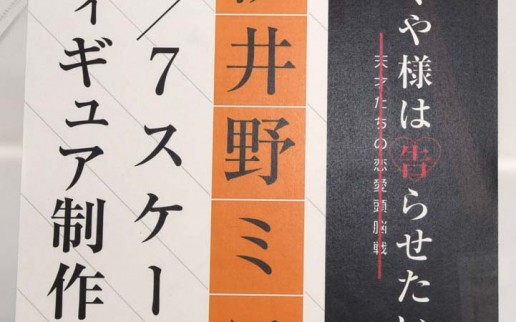 や様は告らせた
天才たちの恋愛頭脳戦
井野ミ
/7スケー
ギュア制作